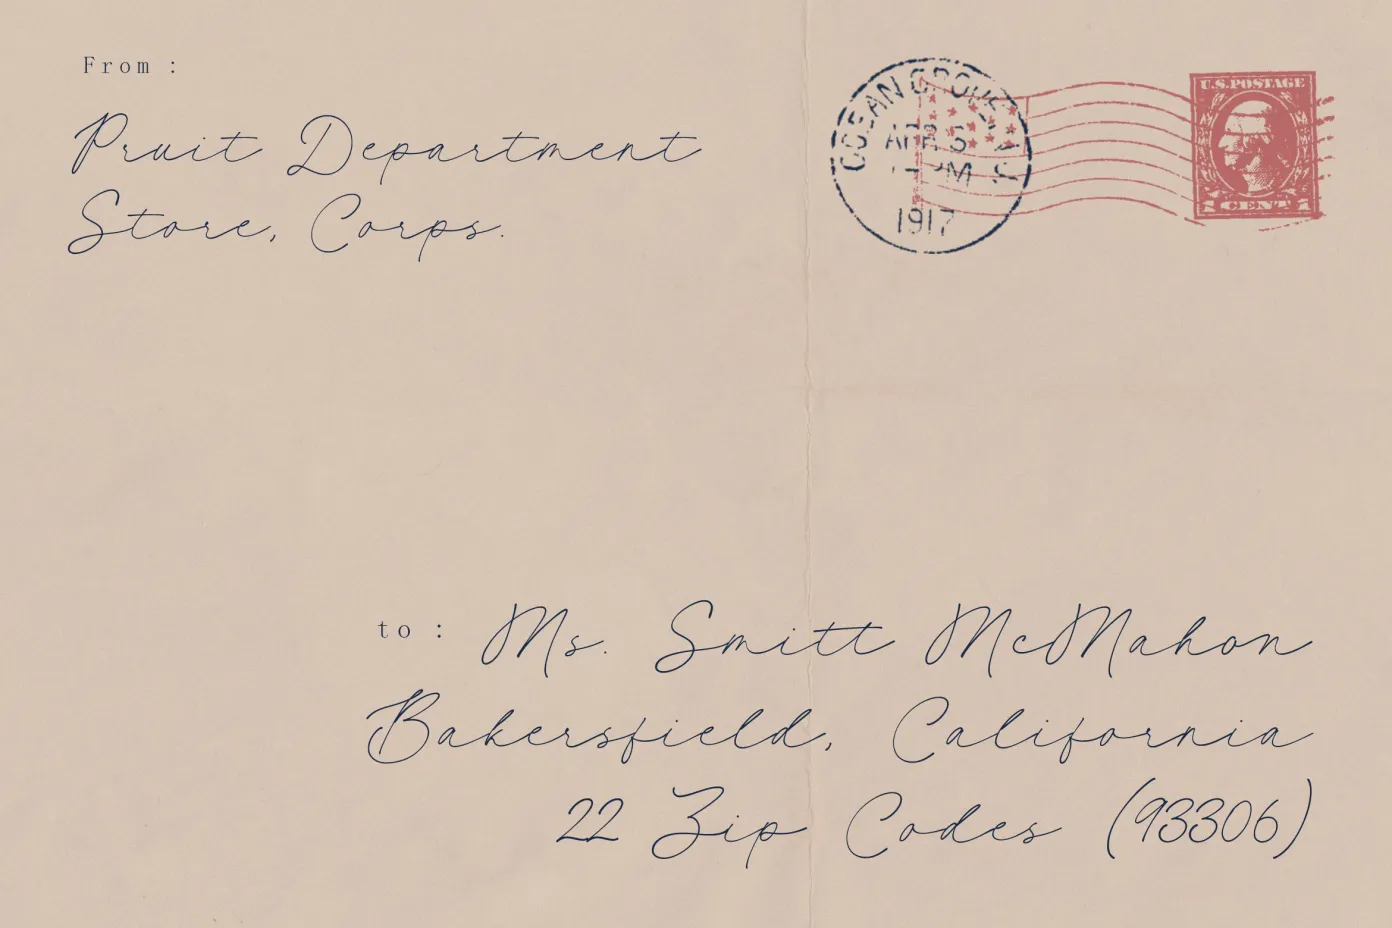 From :
Pruit Department
Store, Corps.
OCEAN GROVE
APR 5
PM
1917
U.S.POSTAGE
1 CENT 1
to : Ms. Smitt McMahon
Bakersfield, California
22 Zip Codes (93306)